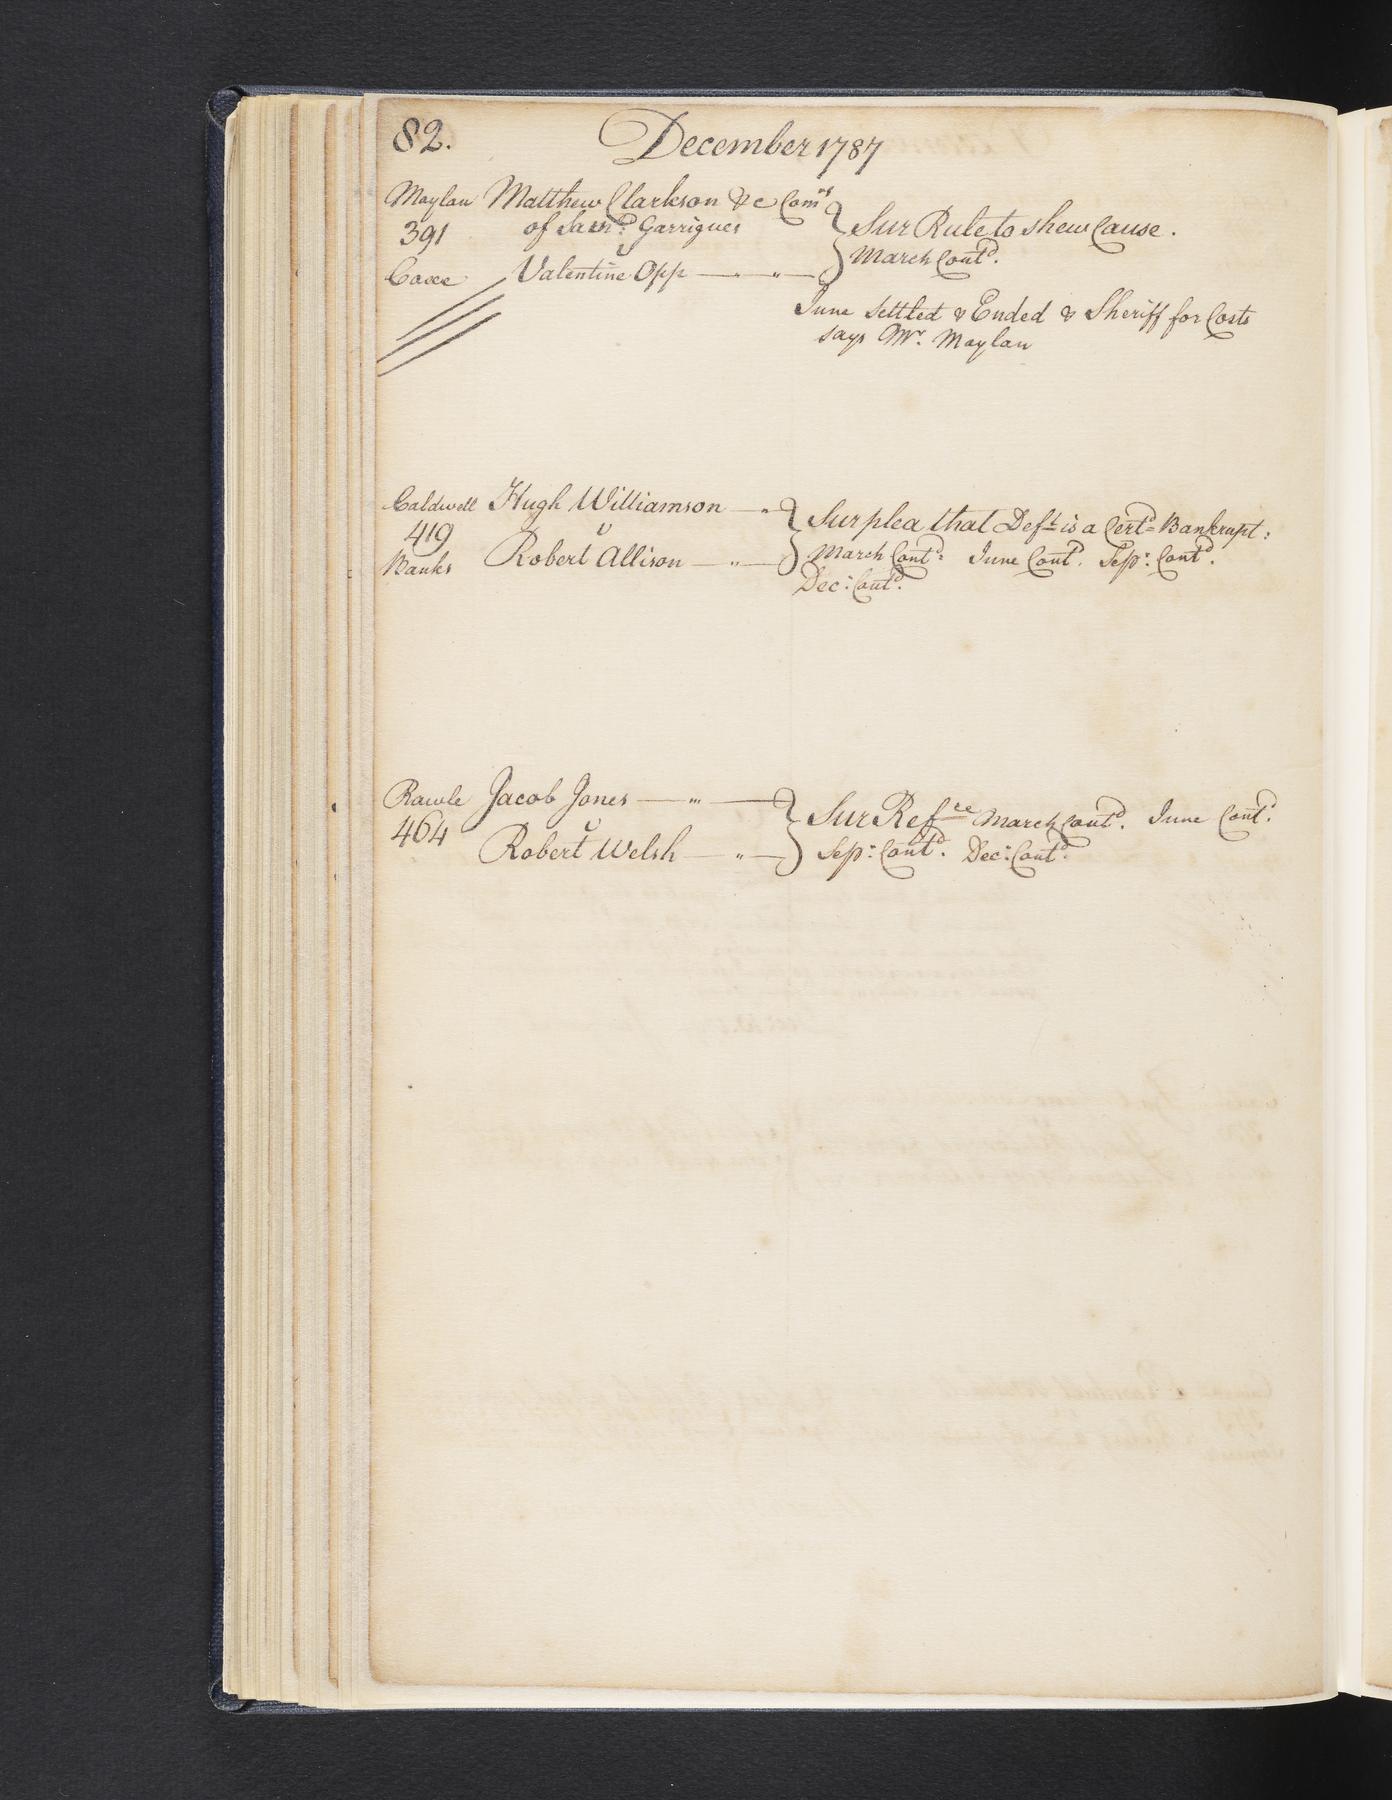 82. December 1787
Moylan Matthew Clarkson &c Comrs
391 of Saml: Garrigues
v
Coxe Valentine Opp
Sur Rule to shew Cause.
March Contd.
June Settled & Ended & Sheriff for Costs
says Mr. Moylan
Caldwell Hugh Williamson
419 v
Banks Robert Allison
Sur plea that Deft is a Certd Bankrupt:
March Contd: June Contd. Sep: Contd.
Dec: Contd.
Rawle Jacob Jones
464 v
Robert Welsh
Sur Refce March Contd. June Contd.
Sep: Contd. Dec: Contd.